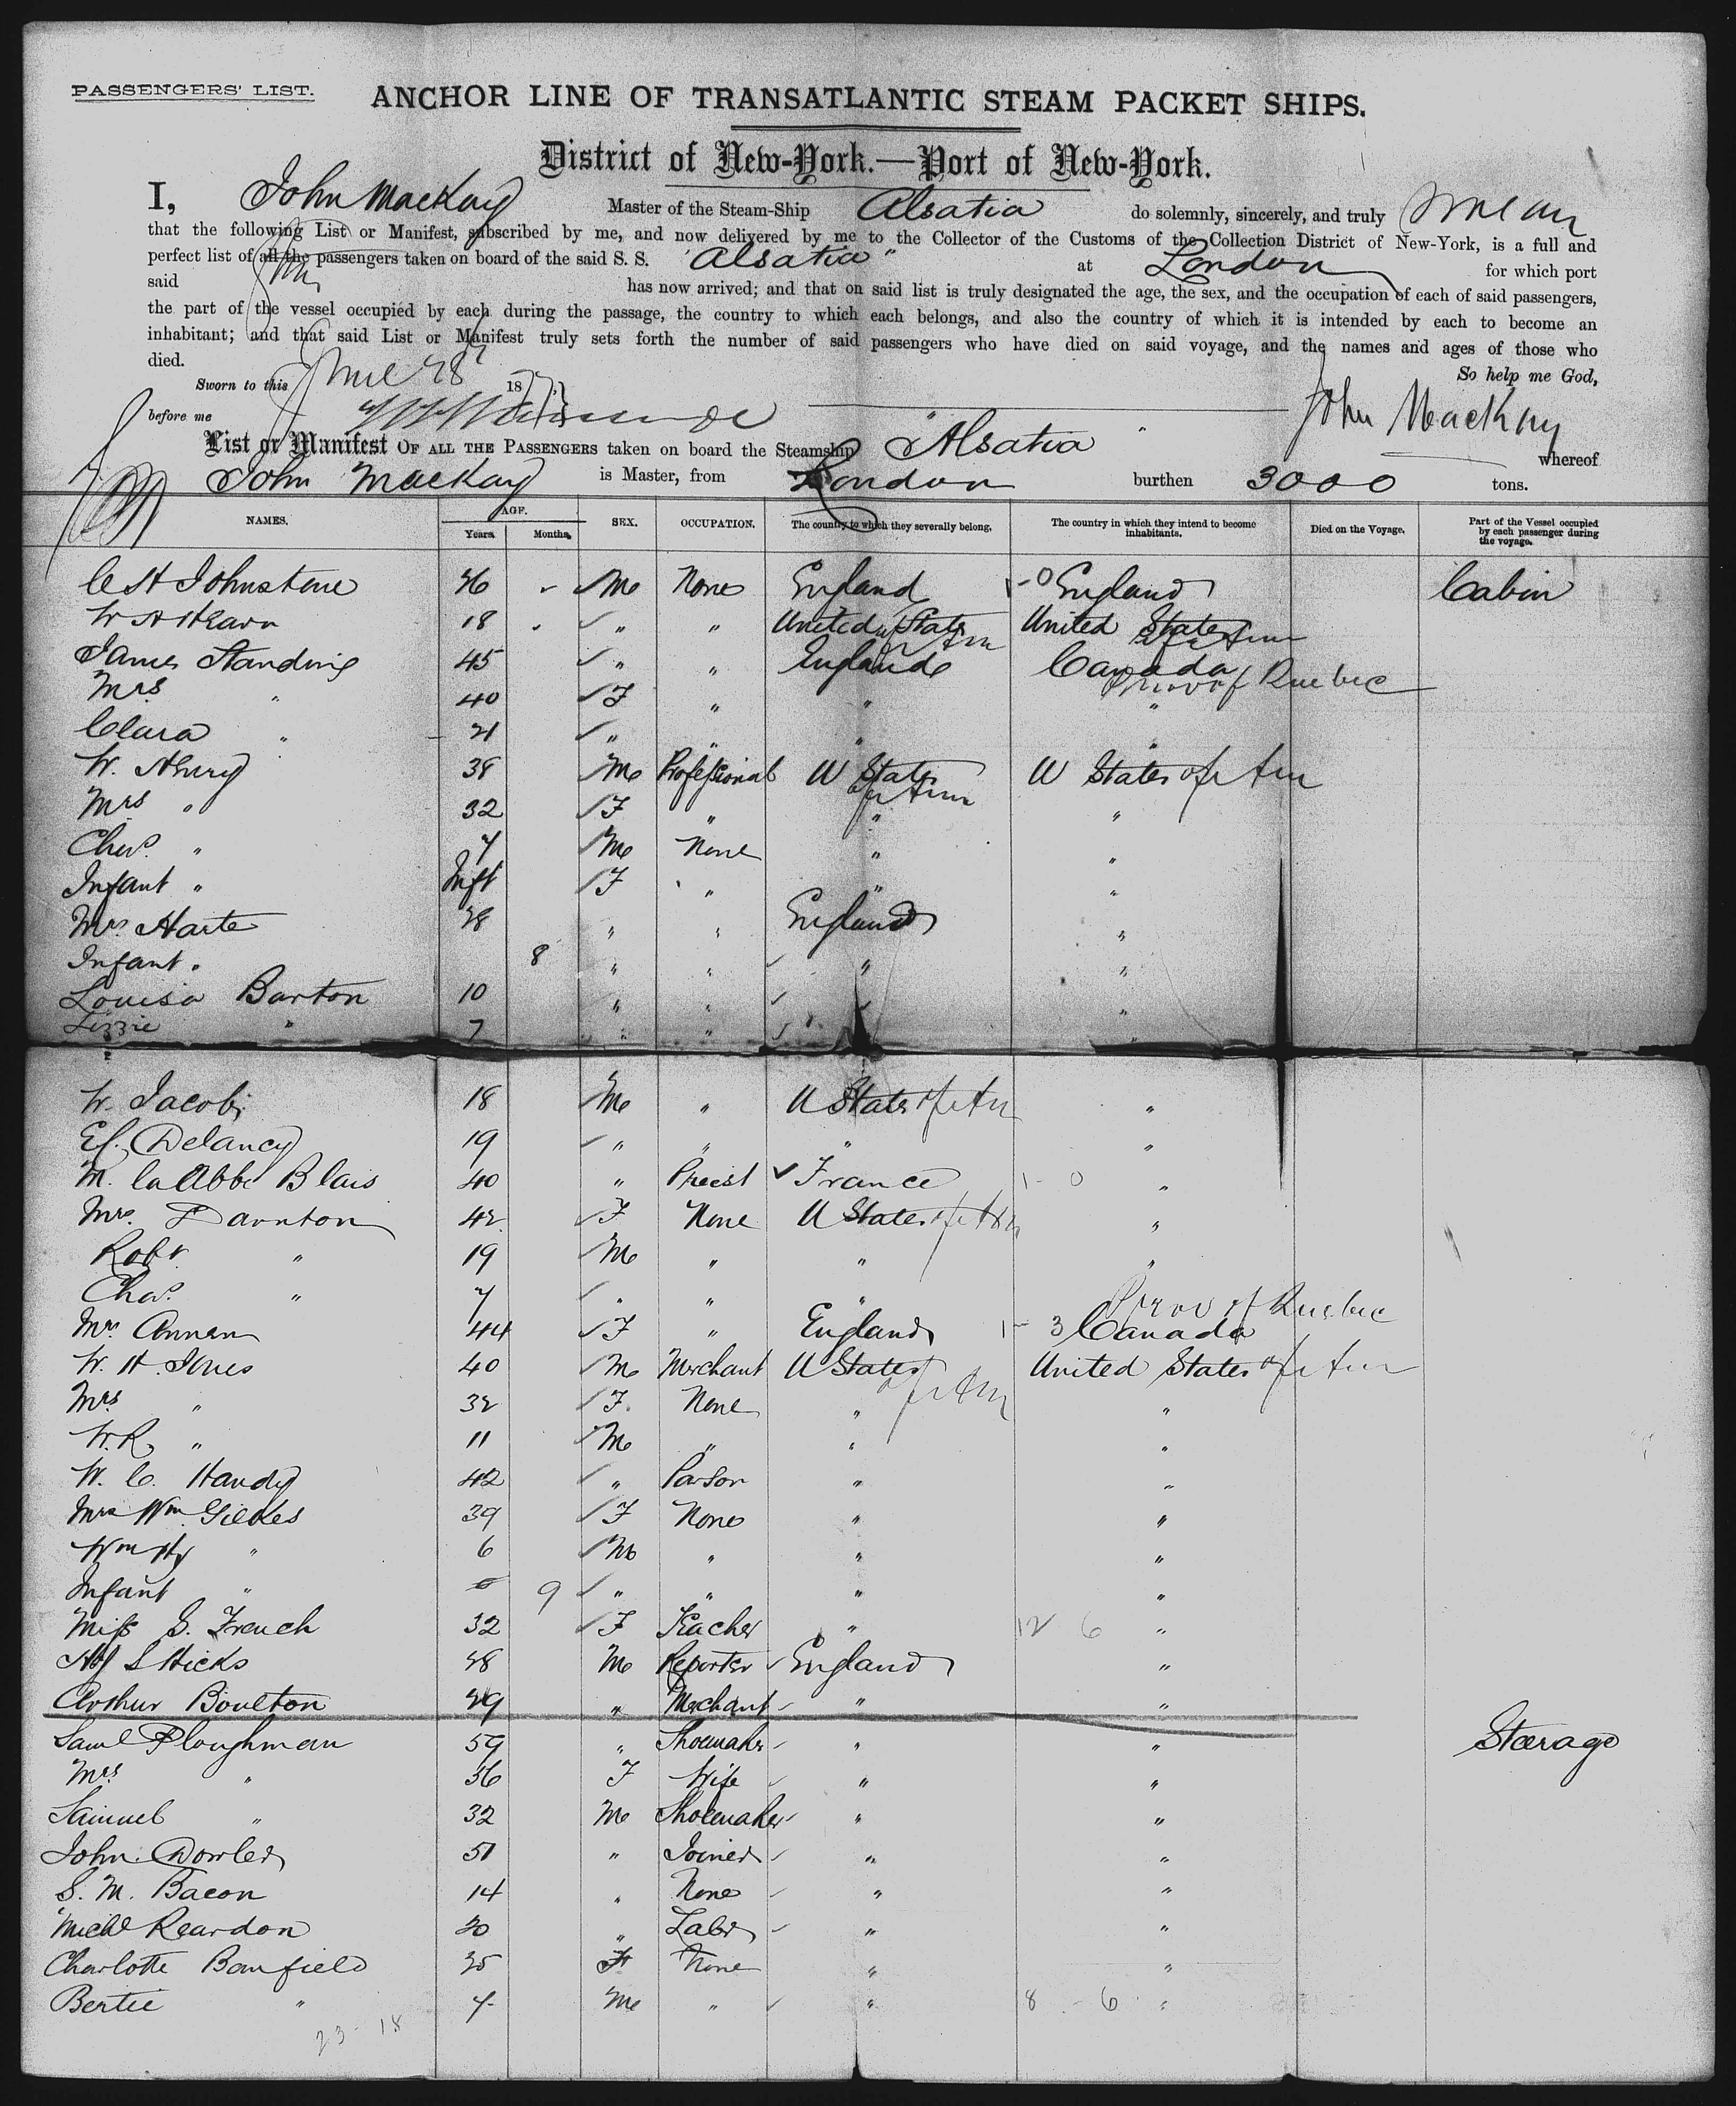 PASSENGERS' LIST.
ANCHOR LINE OF TRANSATLANTIC STEAM PACKET SHIPS.
District of New-York.—Port of New-York.
I, John MacKay Master of the Steam-Ship Alsatia do solemnly, sincerely, and truly swear
that the following List or Manifest, subscribed by me, and now delivered by me to the Collector of the Customs of the Collection District of New-York, is a full and
perfect list of all the passengers taken on board of the said S. S. "Alsatia" at London for which port
said has now arrived; and that on said list is truly designated the age, the sex, and the occupation of each of said passengers,
the part of the vessel occupied by each during the passage, the country to which each belongs, and also the country of which it is intended by each to become an
inhabitant; and that said List or Manifest truly sets forth the number of said passengers who have died on said voyage, and the names and ages of those who
died.
So help me God,
Sworn to this June 28 1877
before me John MacKay
List or Manifest OF ALL THE PASSENGERS taken on board the Steamship Alsatia whereof
John MacKay is Master, from London burthen 3000 tons.
NAMES. AGE. Years. Months. SEX. OCCUPATION. The country to which they severally belong. The country in which they intend to become inhabitants. Died on the Voyage. Part of the Vessel occupied by each passenger during the voyage.
C H Johnstone M None England 1-0 England Cabin
W A Hearn 18 " " United States of Am United States of Am
James Standing 45 " " England Canada Prov of Quebec
Mrs " 40 F " " "
Clara " 21 " " " "
W. 38 M Professional U States of Am U States of Am
Mrs " 32 F " " "
Chas. " 7 M None " "
Infant " Inft F " " "
Mrs Harte 28 " " England "
Infant " 8 " " " "
Louisa Barton 10 " " " "
Lizzie " 7 " " " "
W. Jacobi 18 M " U States of Am "
Ef. Delancy 19 " " " "
M. la Abbe Blais 40 " Preist France 1-0 "
Mrs. Darnton 42 F None U States of Am "
Robt " 19 M " " "
Chas. " 7 " " " "
Mrs. Annan 44 F " England 1-3 Canada Prov of Quebec
W. H. Jones 40 M Merchant U States of Am United States of Am
Mrs " 32 F. None " "
W.R. " 11 M " " "
W. C. Handy 42 " Parson " "
Mrs Wm. Gilkes 39 F None " "
Wm Hy " 6 M " " "
Infant " 9 " " " "
Miss S. French 32 F Teacher " 12 6 "
S Hicks 28 M Reporter England "
Arthur Boulton 29 " Merchant " "
Saml Ploughman 59 " Shoemaker " " Steerage
Mrs " 56 F Wife " "
Samuel " 32 M Shoemaker " "
John Dowler 51 " Joiner " "
S. M. Bacon 14 " None " "
Michl Reardon 20 " Labr " "
Charlotte Banfield 25 F None " "
Bertie " 7 M " " 8 - 6 "
23-18